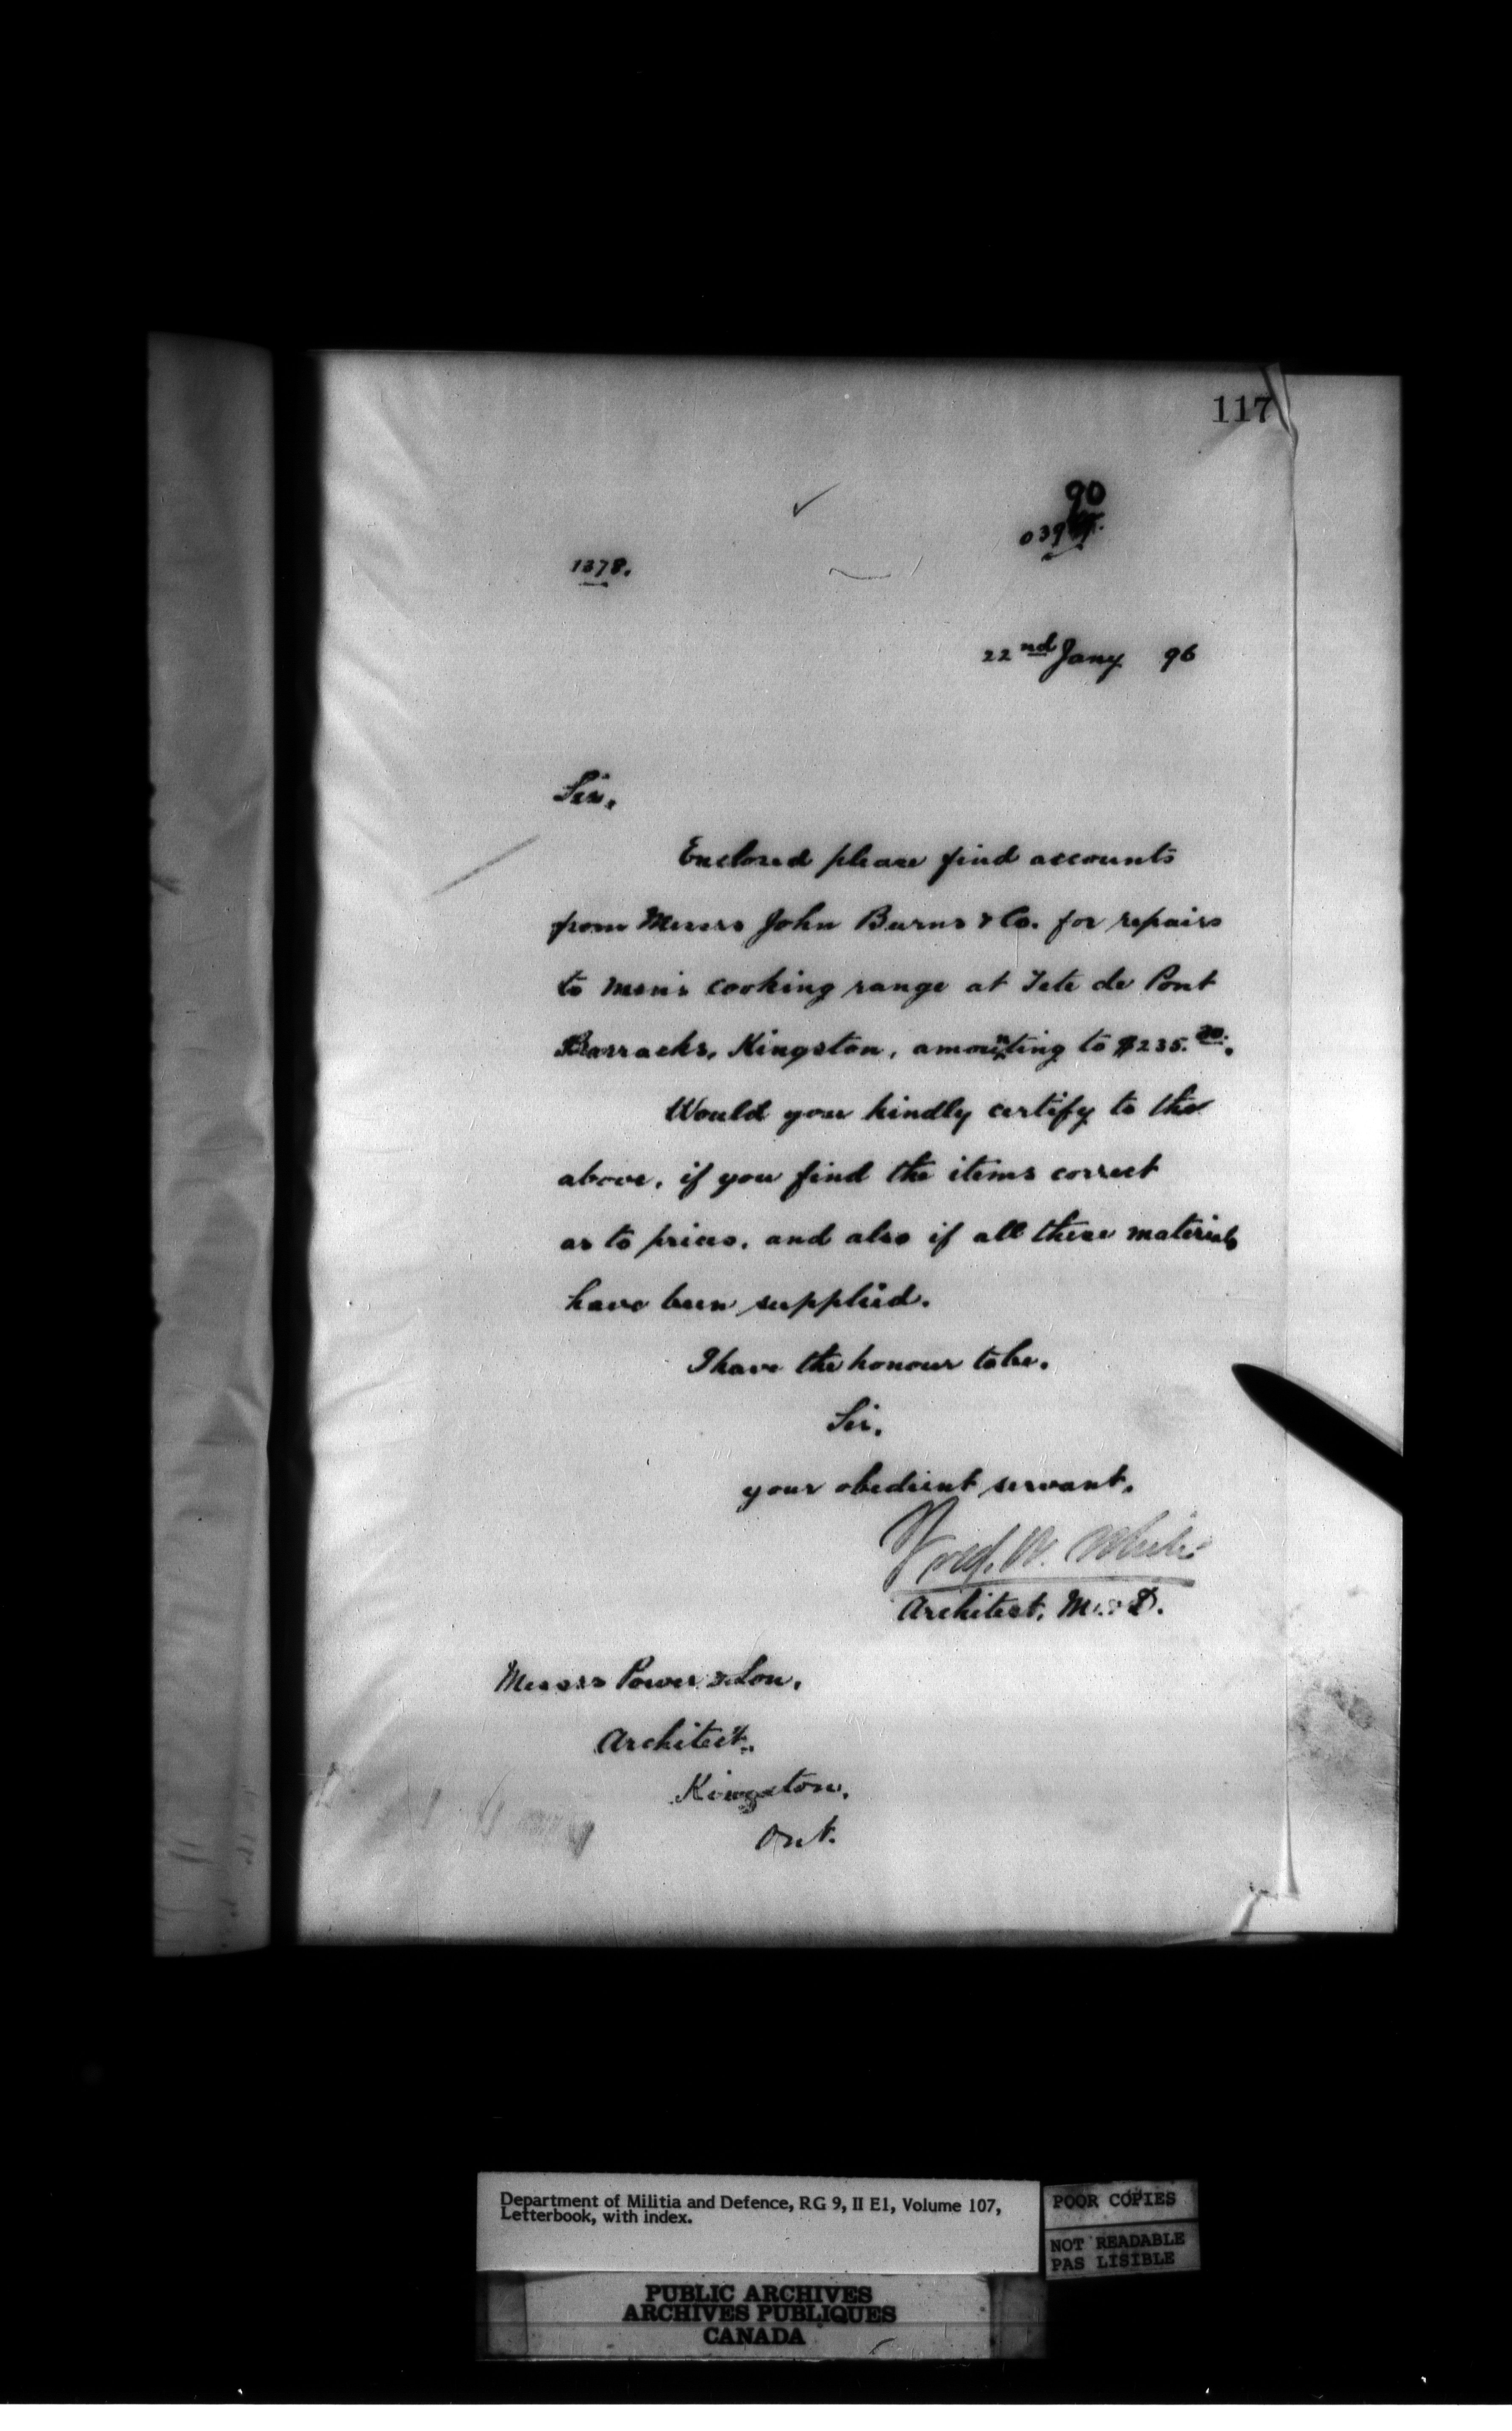 117
90
039
1378.
22nd Jany 96
Sir,
Enclosed please find accounts
from Messrs John Burns & Co. for repairs
to men's cooking range at Tete de Pont
Barracks, Kingston, amounting to $235.20.
Would you kindly certify to the
above, if you find the items correct
as to prices, and also if all these materials
have been supplied.
I have the honour to be,
Sir,
your obedient servant,
Fred. W. White
Architect, M. & D.
Messrs Power & Son,
Architects,
Kingston,
Ont.
Department of Militia and Defence, RG 9, II E1, Volume 107,
Letterbook, with index.
POOR COPIES
NOT READABLE
PAS LISIBLE
PUBLIC ARCHIVES
ARCHIVES PUBLIQUES
CANADA